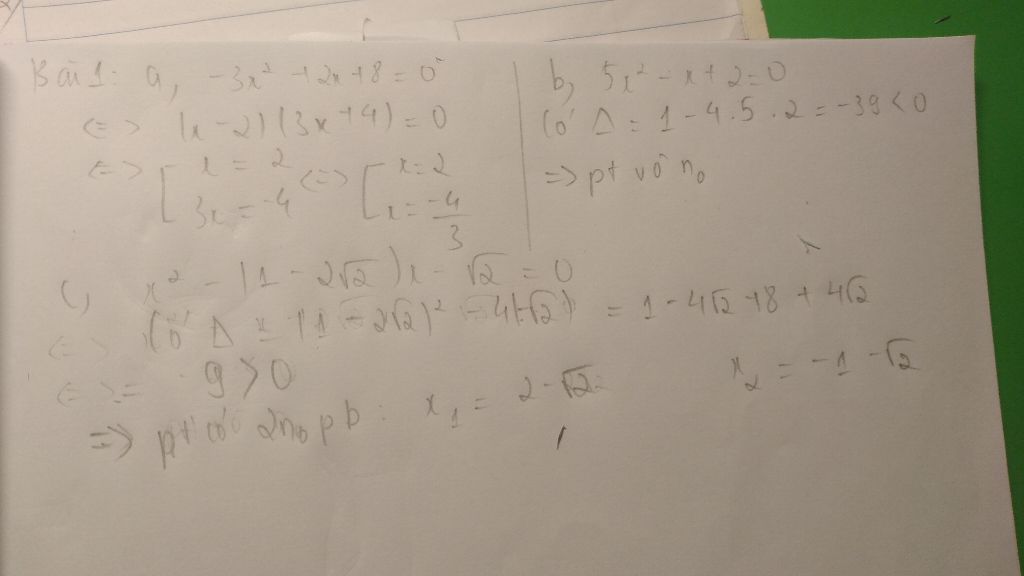 Bài 1: a, -3x² + 2x + 8 = 0
<=> (x - 2)(3x + 4) = 0
<=> [ x = 2 <=> [ x = 2
3x = -4 x = -4/3
b, 5x² - x + 2 = 0
Có Δ = 1 - 4.5.2 = -39 < 0
=> pt vô n₀
c, x² - (1 - 2√2)x - √2 = 0
<=> Có Δ = (1 - 2√2)² - 4(-√2) = 1 - 4√2 + 8 + 4√2
<=> = 9 > 0
=> pt có 2n₀ pb: x₁ = 2 - √2 x₂ = -1 - √2